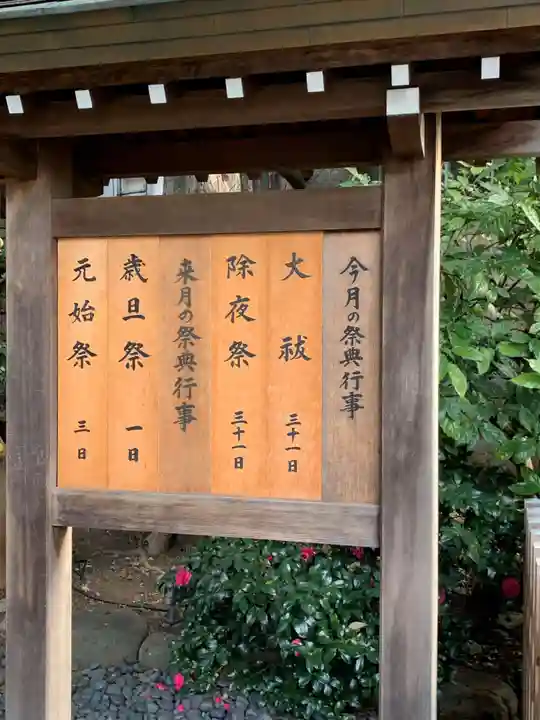 今月の祭典行事
大祓 三十一日
除夜祭 三十一日
来月の祭典行事
歳旦祭 一日
元始祭 三日